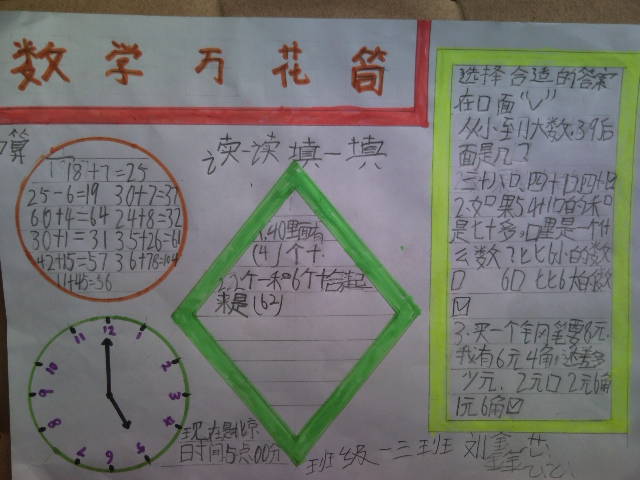 数学万花筒
算
18+7=25
25-6=19 30+7=37
60+4=64 24+8=32
30+1=31 35+26=61
42+15=57 36+78=104
11+45=56
读一读 填一填
1、40里面有
(4)个十.
2、2个一和6个十合起
来是(62)
12
1
2
3
4
5
6
7
8
9
10
11
现在是北京
时间5点00分
选择合适的答案
在口面“√”
从小到大数,39后
面是几?
2.如果54+口的和
是七十多,口里是一个什
么数?比6小的数
口 6口 比6大的数
☑
3.买一个钢笔要8元.
我有6元4角,还差多
少元. 2元口 2元6角
1元6角☑
班级 一三班 刘